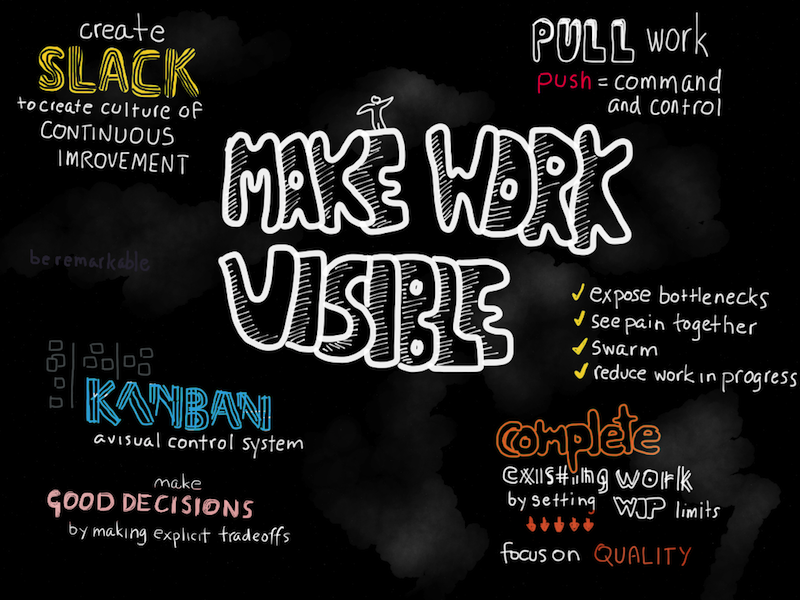 create
SLACK
to create culture of
CONTINUOUS
IMROVEMENT
PULL work
push = command
and control
MAKE WORK
VISIBLE
be remarkable
✓ expose bottlenecks
✓ see pain together
✓ swarm
✓ reduce work in progress
KANBAN
a visual control system
make
GOOD DECISIONS
by making explicit tradeoffs
complete
existing work
by setting WIP limits
focus on QUALITY